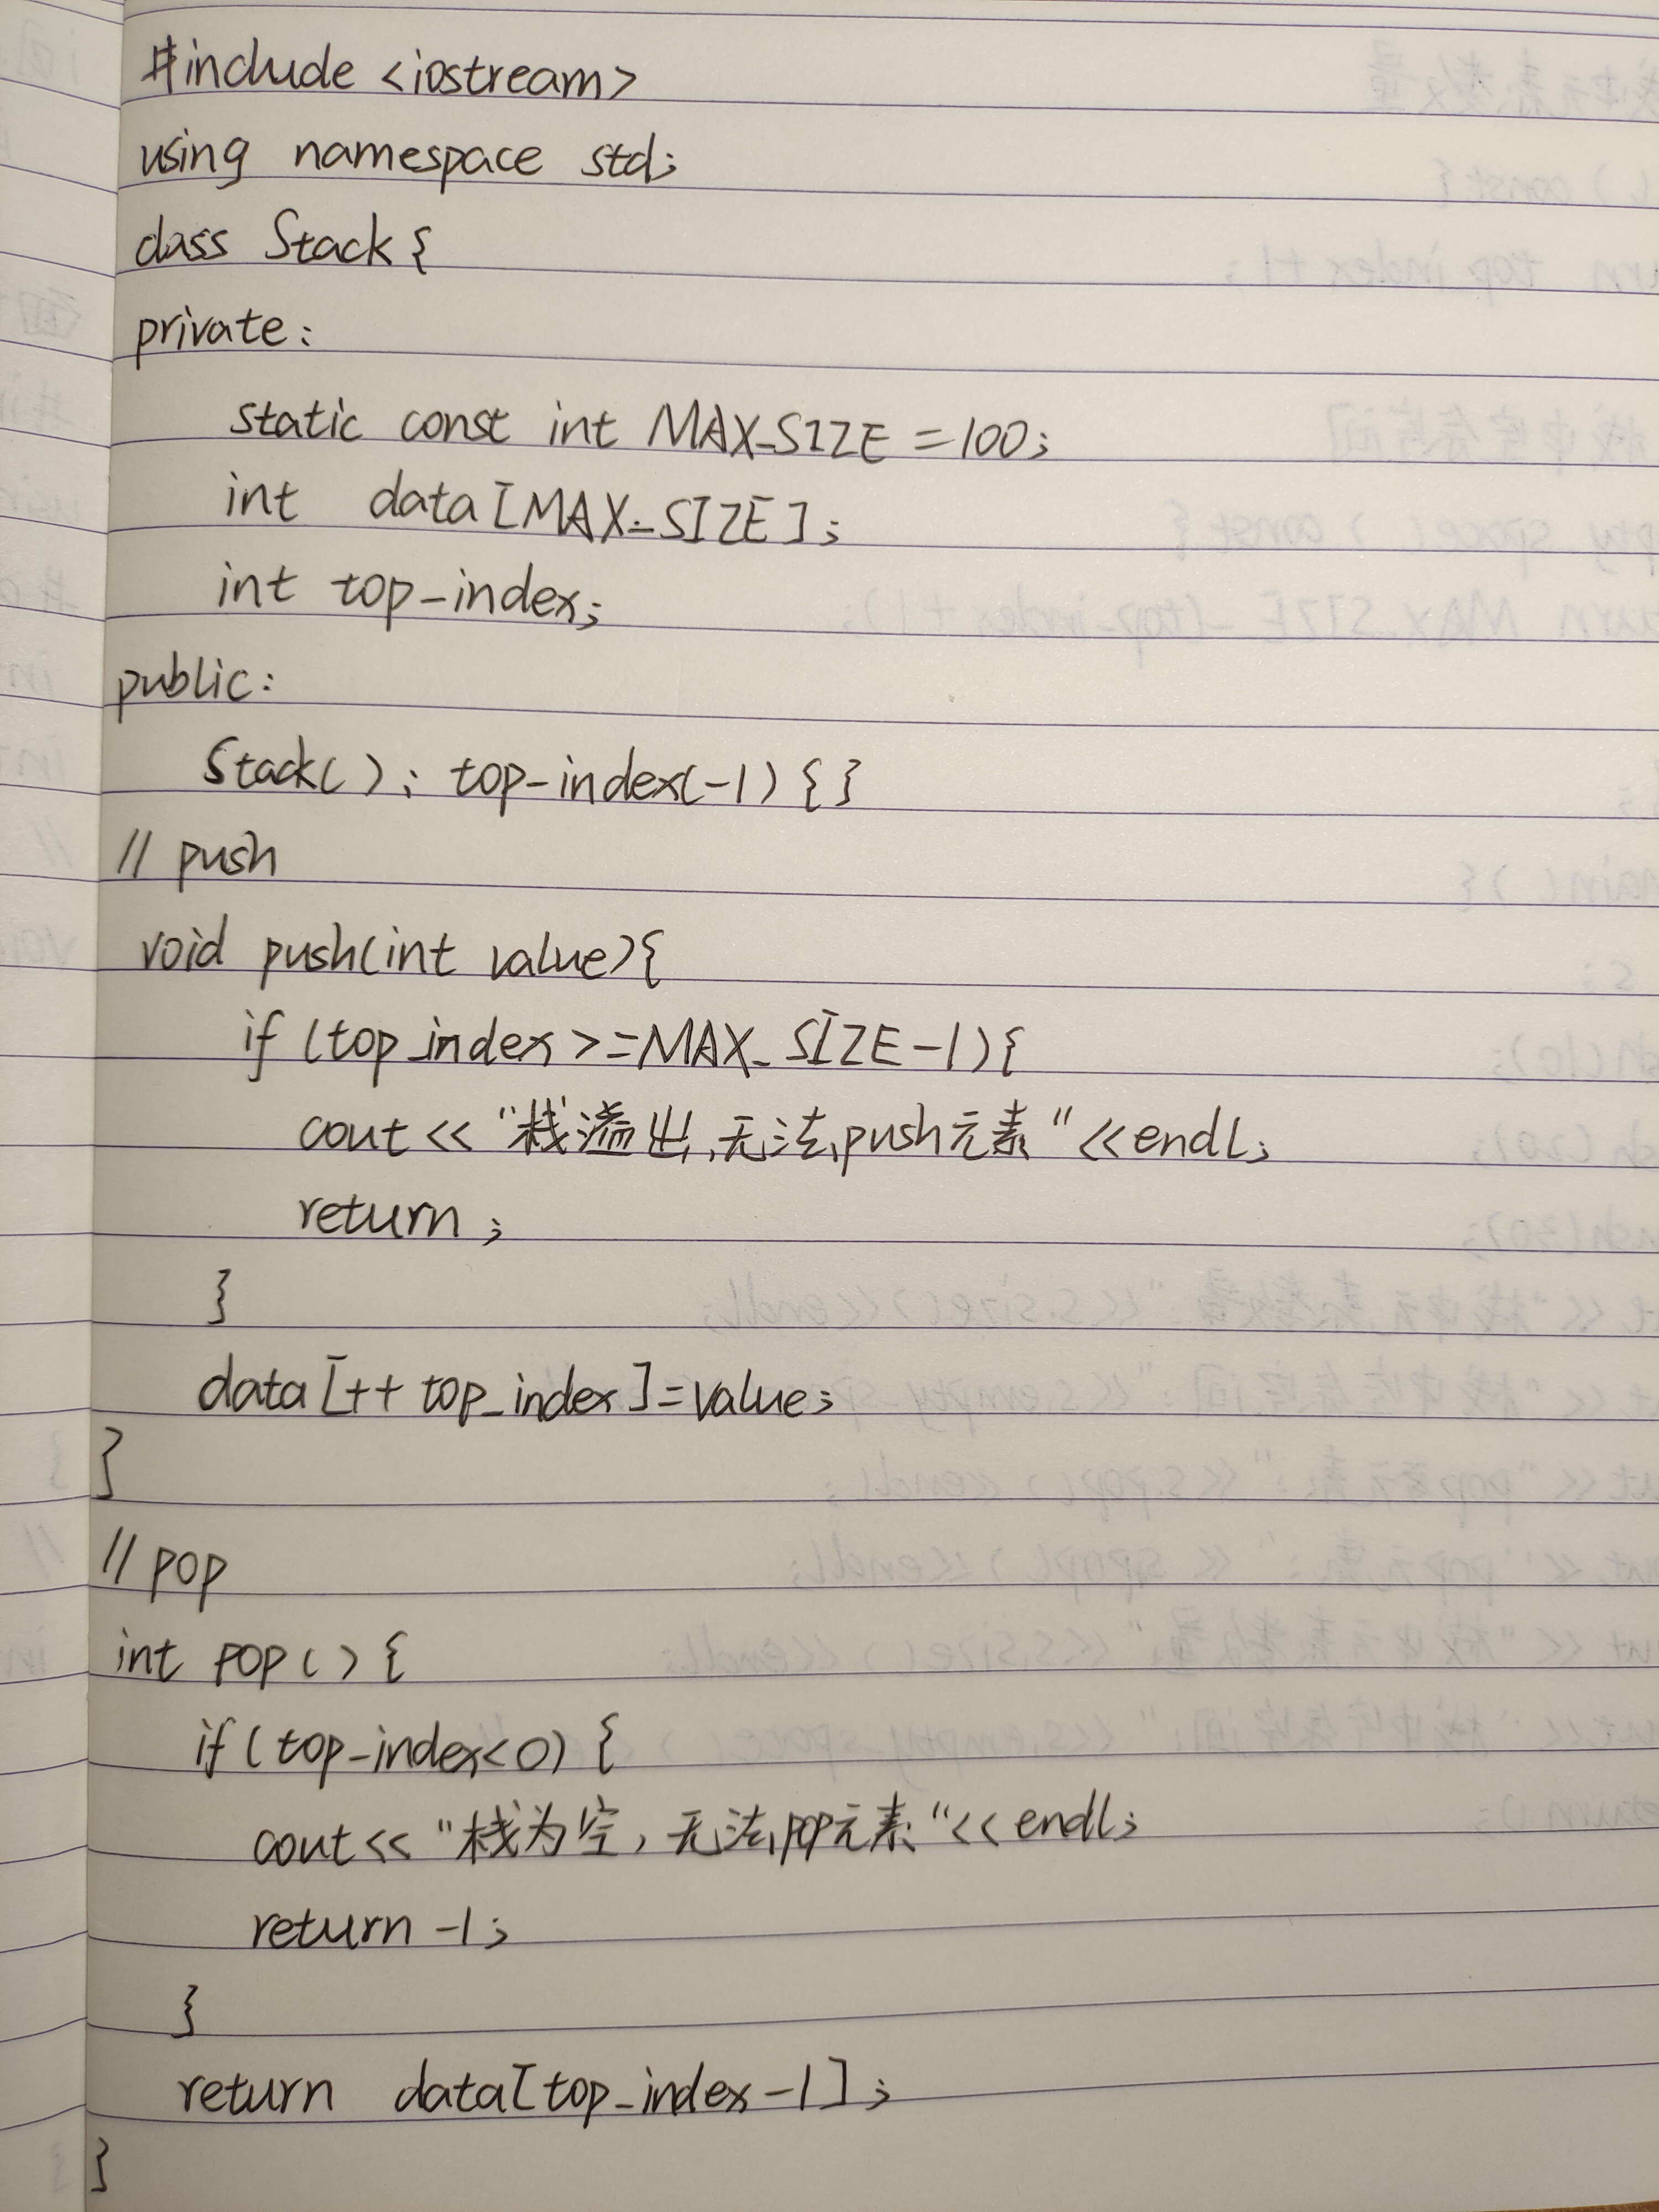 #include <iostream>
using namespace std;
class Stack {
private:
static const int MAX_SIZE = 100;
int data [MAX_SIZE];
int top_index;
public:
Stack() : top_index(-1) { }
// push
void push(int value){
if (top_index >= MAX_SIZE -1){
cout << "栈溢出,无法push元素" << endl;
return ;
}
data [++ top_index] = value;
}
// pop
int pop() {
if (top_index<0) {
cout << "栈为空, 无法pop元素" << endl;
return -1;
}
return data[top_index -1];
}